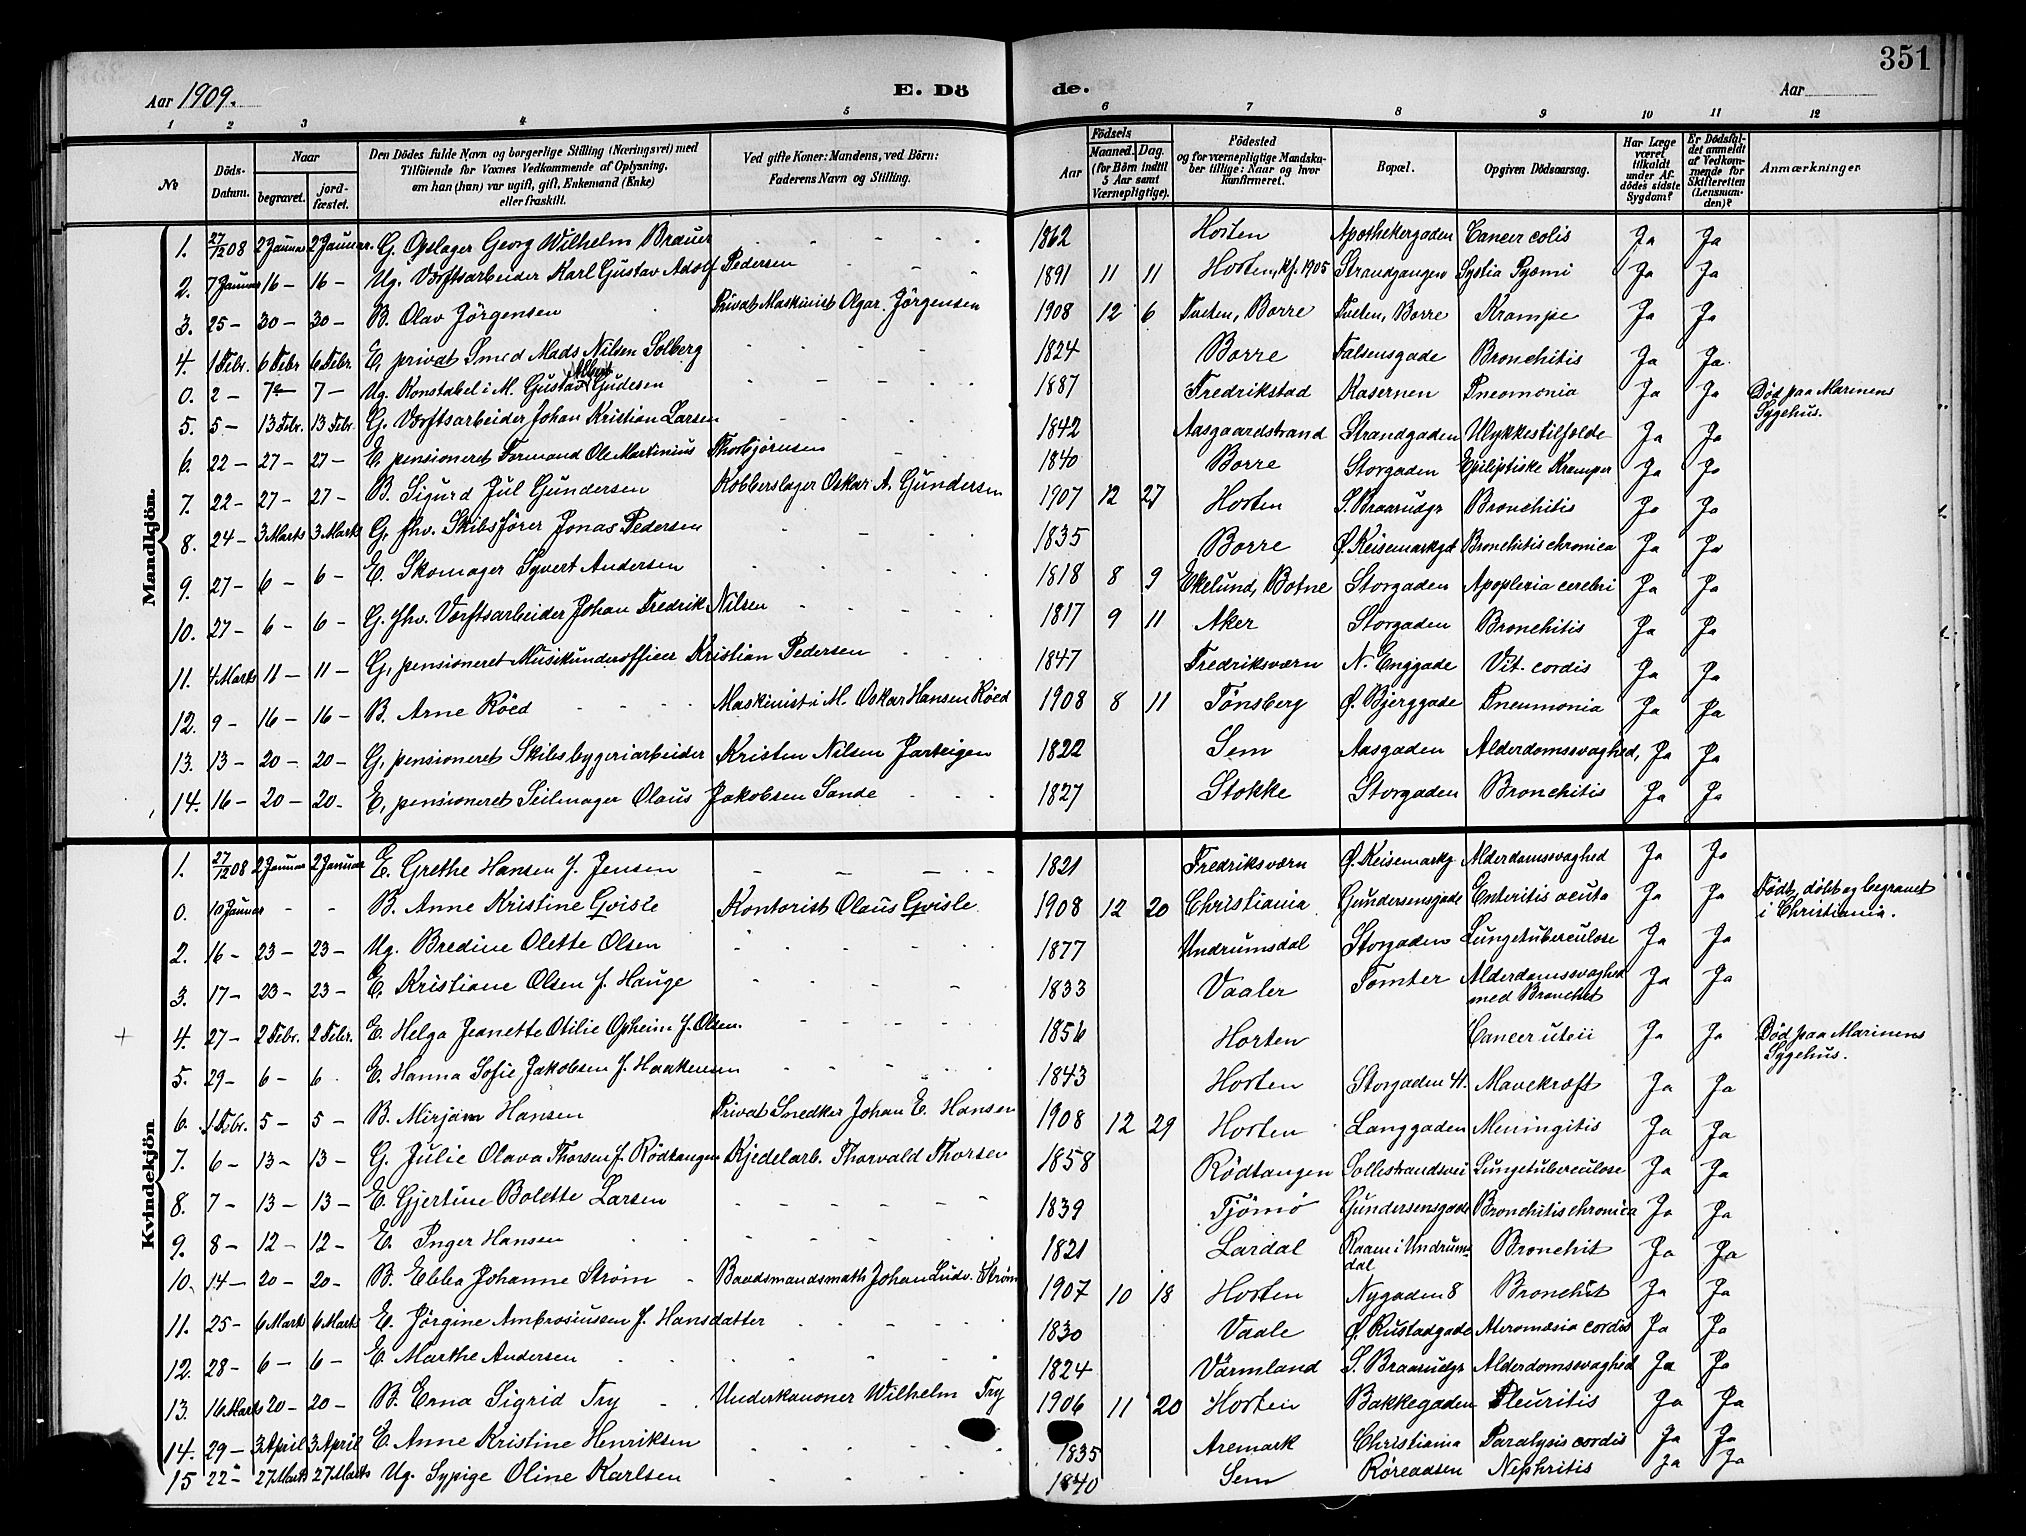 351
Aar 1909. E. Dö de. Aar
1 2 3 4 5 6 7 8 9 10 11 12
№ Döds-Datum. Naar begravet. jord-fæstet. Den Dödes fulde Navn og borgerlige Stilling (Næringsvei) med Tilföiende for Voxnes Vedkommende af Oplysning, om han (hun) var ugift, gift, Enkemand (Enke) eller fraskilt. Ved gifte Koner: Mandens, ved Börn: Faderens Navn og Stilling. Aar Födsels Maaned. Dag. (for Börn indtil 5 Aar samt Værnepligtige). Födested og for værnepligtige Mandskaber tillige: Naar og hvor konfirmeret. Bopæl. Opgiven Dödsaarsag. Har Læge været tilkaldt under Afdödes sidste Sygdom? Er Dödsfaldet anmeldt af Vedkommende for Skifteretten (Lensmanden)? Anmærkninger
Mandkjön.
1. 27/12 08 2 Januar 2 Januar. G. Opslager Georg Wilhelm Brauer 1862 Horten Apothekergaden Cancer colis Ja Ja
2. 7 Januar 16 – 16 – Ug. Værftsarbeider Karl Gustav Adolf Pedersen 1891 11 11 Horten, kf. 1905 Strandgangen Pyæmi Ja Ja
3. 25 – 30 – 30 – B. Olav Jörgensen Privat Maskinist Olgar Jörgensen 1908 12 6 Tveten, Borre Tveten, Borre Krampe Ja Ja
4. 1 Febr. 6 Febr 6 Febr. E. privat Smed Mads Nilsen Solberg 1824 Borre Falsensgade Bronchitis Ja Ja
0. 2 – 7 – 7 – Ug. Konstabel i M. Gustav Albert Gudesen 1887 Fredrikstad Kasernen Pneomonia Ja Ja Död paa Marinens Sygehus.
5. 5 – 13 Febr. 13 Febr. G. Værftsarbeider Johan Kristian Larsen 1842 Aasgaardstrand Strandgaden Ulykkestilfælde Ja Ja
6. 22 – 27 – 27 – E. pensioneret Formand Ole Martinius Thorbjörnsen 1840 Borre Storgaden Epileptiske Kramper Ja Ja
7. 22 – 27 – 27 – B. Sigurd Jul Gundersen Kobberslager Oskar A. Gundersen 1907 12 27 Horten S. Braarudgt Bronchitis Ja Ja
8. 24 – 3 Marts 3 Marts G. fhv. Skibsförer Jonas Pedersen 1835 Borre Ø. Keisemarkgd Bronchitis chronica Ja Ja
9. 27 – 6 – 6 – E. Skomager Syvert Andersen 1818 8 9 Ekelund, Botne Storgaden Apoplexia cerebri Ja Ja
10. 27 – 6 – 6 – G. fhv. Værftsarbeider Johan Fredrik Nilsen 1817 9 11 Aker Storgaden Bronchitis Ja Ja
11. 4 Marts 11 – 11 – G. pensioneret Musikunderofficer Kristian Pedersen 1847 Fredriksværn N. Enggade Vit. cordis Ja Ja
12. 9 – 16 – 16 – B. Arne Röed Maskinist i M. Oskar Hansen Röed 1908 8 11 Tönsberg Ø. Bjerggade Pneumonia Ja Ja
13. 13 – 20 – 20 – G. pensioneret Skibsbyggeriarbeider Kristen Nilsen Jarteigen 1822 Sem Aasgaden Alderdomssvaghed, Ja Ja
14. 16 – 20 – 20 – E. pensioneret Seilmager Olaus Jakobsen Sande 1827 Stokke Storgaden Bronchitis Ja Ja
Kvindekjön
1. 27/12 08 2 Januar 2 Januar E. Grethe Hansen f. Jensen 1821 Fredriksværn Ø. Keisemarkg Alderdomssvaghed Ja Ja
0. 10 Januar – – B. Anne Kristine Gvisle Kontorist Olaus Gvisle 1908 12 20 Christiania Gundersensgade Enteritis acuta Ja Ja Födt, döbt og begravet i Christiania.
2. 16 – 23 – 23 – Ug. Bredine Olette Olsen 1877 Undrumsdal Storgaden Lungetuberculose Ja Ja
3. 17 – 23 – 23 – E. Kristiane Olsen f. Hauge 1833 Vaaler Tomter Alderdomssvaghed med Bronchit Ja Ja
4. 27 – 2 Febr. 2 Febr. E. Helga Jeanette Otilie Opheim f. Olsen. 1856 Horten Cancer uteri Ja Ja Död paa Marinens Sygehus.
5. 29 – 6 – 6 E. Hanna Sofie Jakobsen f. Haakensen 1843 Horten Storgaden 41. Mavekræft Ja Ja
6. 1 Febr. 5 – 5 – B. Mirjam Hansen Privat Snedker Johan E. Hansen 1908 12 29 Horten Langgaden Meningitis Ja Ja
7. 6 – 13 – 13 – G. Julie Olava Thorsen f. Rödtangen Kjedelarb. Thorvald Thorsen 1858 Rödtangen Sollistrandsvei Lungetuberculose Ja Ja
8. 7 – 13 – 13 – E. Gjertine Bolette Larsen 1839 Tjömö Gundersensgade Bronchitis chronica Ja Ja
9. 8 – 12 – 12 – E. Inger Hansen 1821 Lardal Raam i Undrumsdal Bronchit Ja Ja
10. 14 – 20 – 20 – B. Ebba Johanne Ström Baadsmandsmath Johan Ludv. Ström 1907 10 18 Horten Nygaden 8 Bronchit Ja Ja
11. 25 – 6 Marts 6 Marts E. Jörgine Ambrosiussen f. Hansdatter 1830 Vaale Ø. Rustadgade cordis Ja Ja
12. 28 – 6 – 6 – E. Marthe Andersen 1824 Värmland S. Braarudgt Alderdomssvaghed Ja Ja
13. 16 Marts 20 – 20 – B. Erna Sigrid Try Underkanoner Wilhelm Try 1906 11 20 Horten Bakkegaden Pleuritis Ja Ja
14. 29 – 3 April 3 April E. Anne Kristine Henriksen 1835 Aremark Christiania Paralysis cordis Ja Ja
15 22 – 27 Marts 27 Marts Ug. Sypige Oline Karlsen 1840 Sem Röreaasen Nephritis Ja Ja